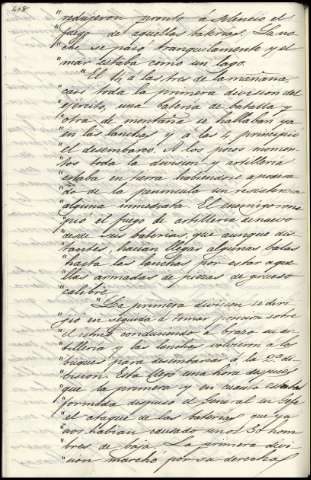 468
"redujeron pronto á silencio el
"fuego de aquellas baterias. La no
"che se pasó tranquilamente y el
"mar estaba como un lago.
"El 4, á las tres de la mañana,
"casi toda la primera division del
"ejército, una bateria de batalla y
"otra de montaña se hallaban ya
"en las lanchas y á las 4 principió
"el desembarco. A los pocos momen
"tos toda la division y artilleria
"estaba en tierra habiendose apodera
"do de la peninsula sin resistencia
"alguna inmediata. El enemigo rom
"pió el fuego de artilleria de nuevo
"desde sus baterias, que aunque dis
"tantes, hacian llegar algunas balas
"hasta las lanchas por estar aque
"llas armadas de piezas de grueso
"calibre.
"La primera division se diri
"gió en seguida á tomar posicion sobre
"el itsmo conduciendo á brazo su ar
"tilleria y las lanchas volvieron á los
"buques para desembarcar á la 2ª di
"vision. Esta llegó una hora despues
"que la primera y en cuanto estaba
"formada dispuso el General en Gefe
"el ataque de las baterias que ya
"nos habian causado unos 30 hom
"bres de baja. La primera divi
"sion marchó por su derecha,